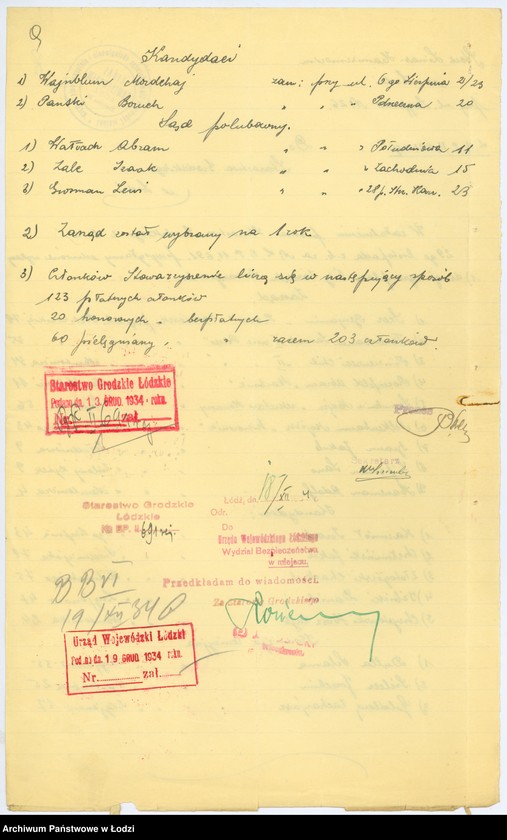 Kandydaci
1) Wajnblum Mordchaj zam: przy ul. 6-go Sierpnia 2/23
2) Pański Boruch " " " Północna 20
Sąd polubowny.
1) Watrach Abram " " " Południowa 11
2) Zale Izaak " " " Zachodnia 15
3) Grosman Lewi " " " 28 p. Str. Kan. 23
2) Zarząd został wybrany na 1 rok
3) Członków Stowarzyszenie liczą się w następujący sposób
123 płatnych członków
20 honorowych " bezpłatnych
60 pielęgniany " " razem 203 członków.
Starostwo Grodzkie Łódzkie
Podano dn. 13 GRUD. 1934 roku.
Nr. zał.
Prezes
Sekretarz
Starostwo Grodzkie
Łódzkie
Łódź, dn. 18/XII 4
Odr.
Do
Urzędu Wojewódzkiego Łódzkiego
Wydział Bezpieczeństwa
w miejscu.
Przedkładam do wiadomości.
Za Starostę Grodzkiego
BBVI
19/XII 34
Urząd Wojewódzki Łódzki
Pod. no dn. 19 GRUD 1934 roku.
Nr. zał.
Archiwum Państwowe w Łodzi